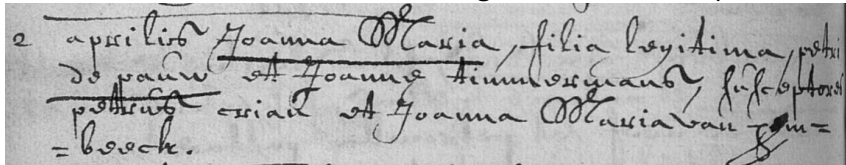 2 aprilis Joanna Maria, filia legitima, petri
de pauw et Joanne timmermans, susceptores
petrus criau et Joanna Maria van pem=
=beeck.